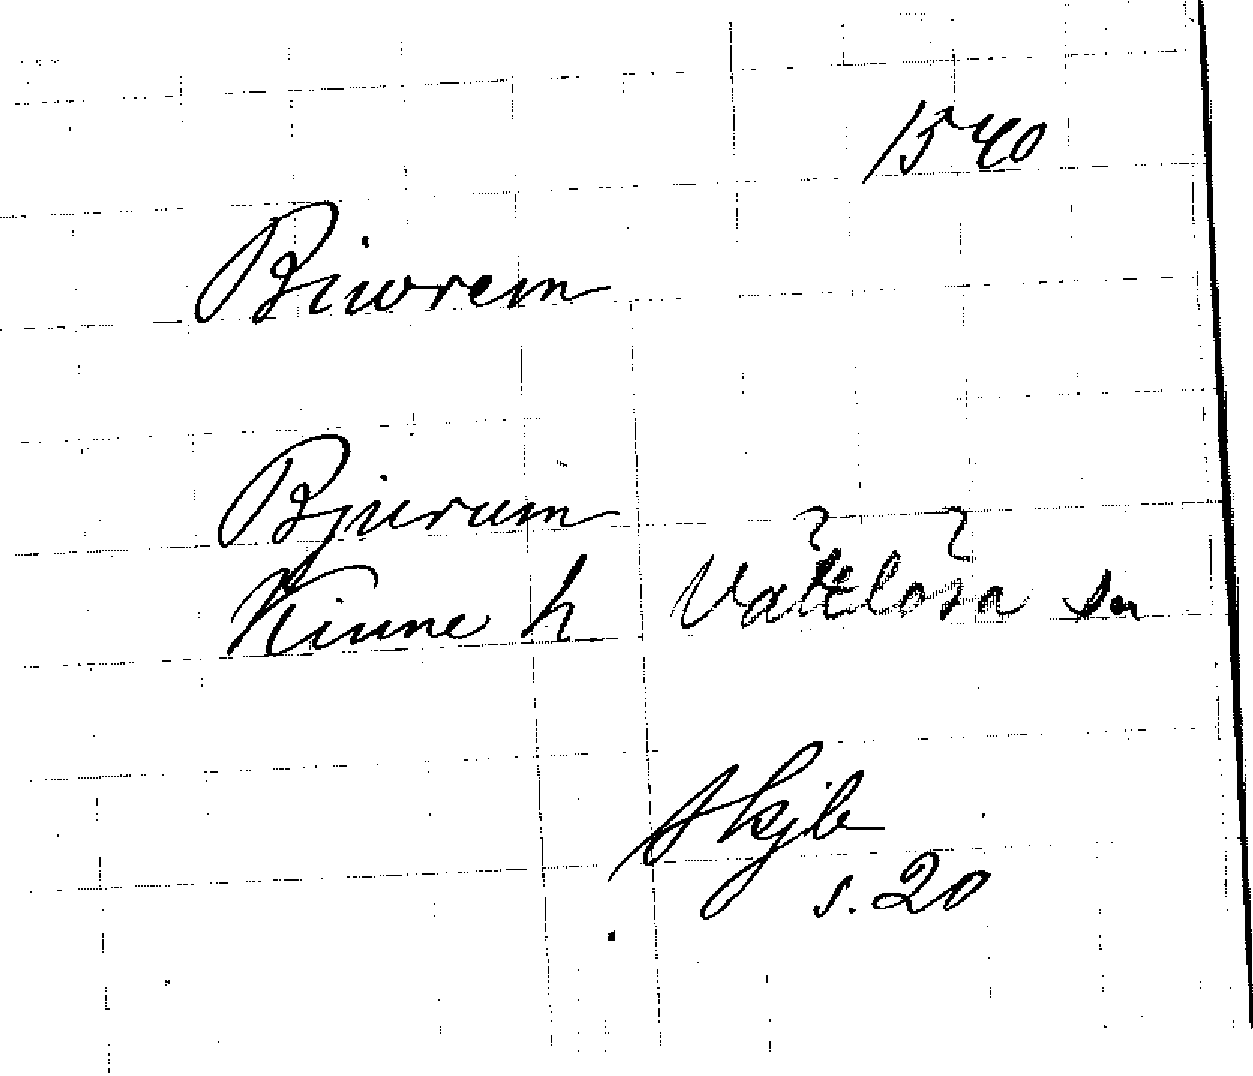 1540
Biworem
Bjurum
? ?
Kinne h Vättlösa sn
Skjb
s. 20